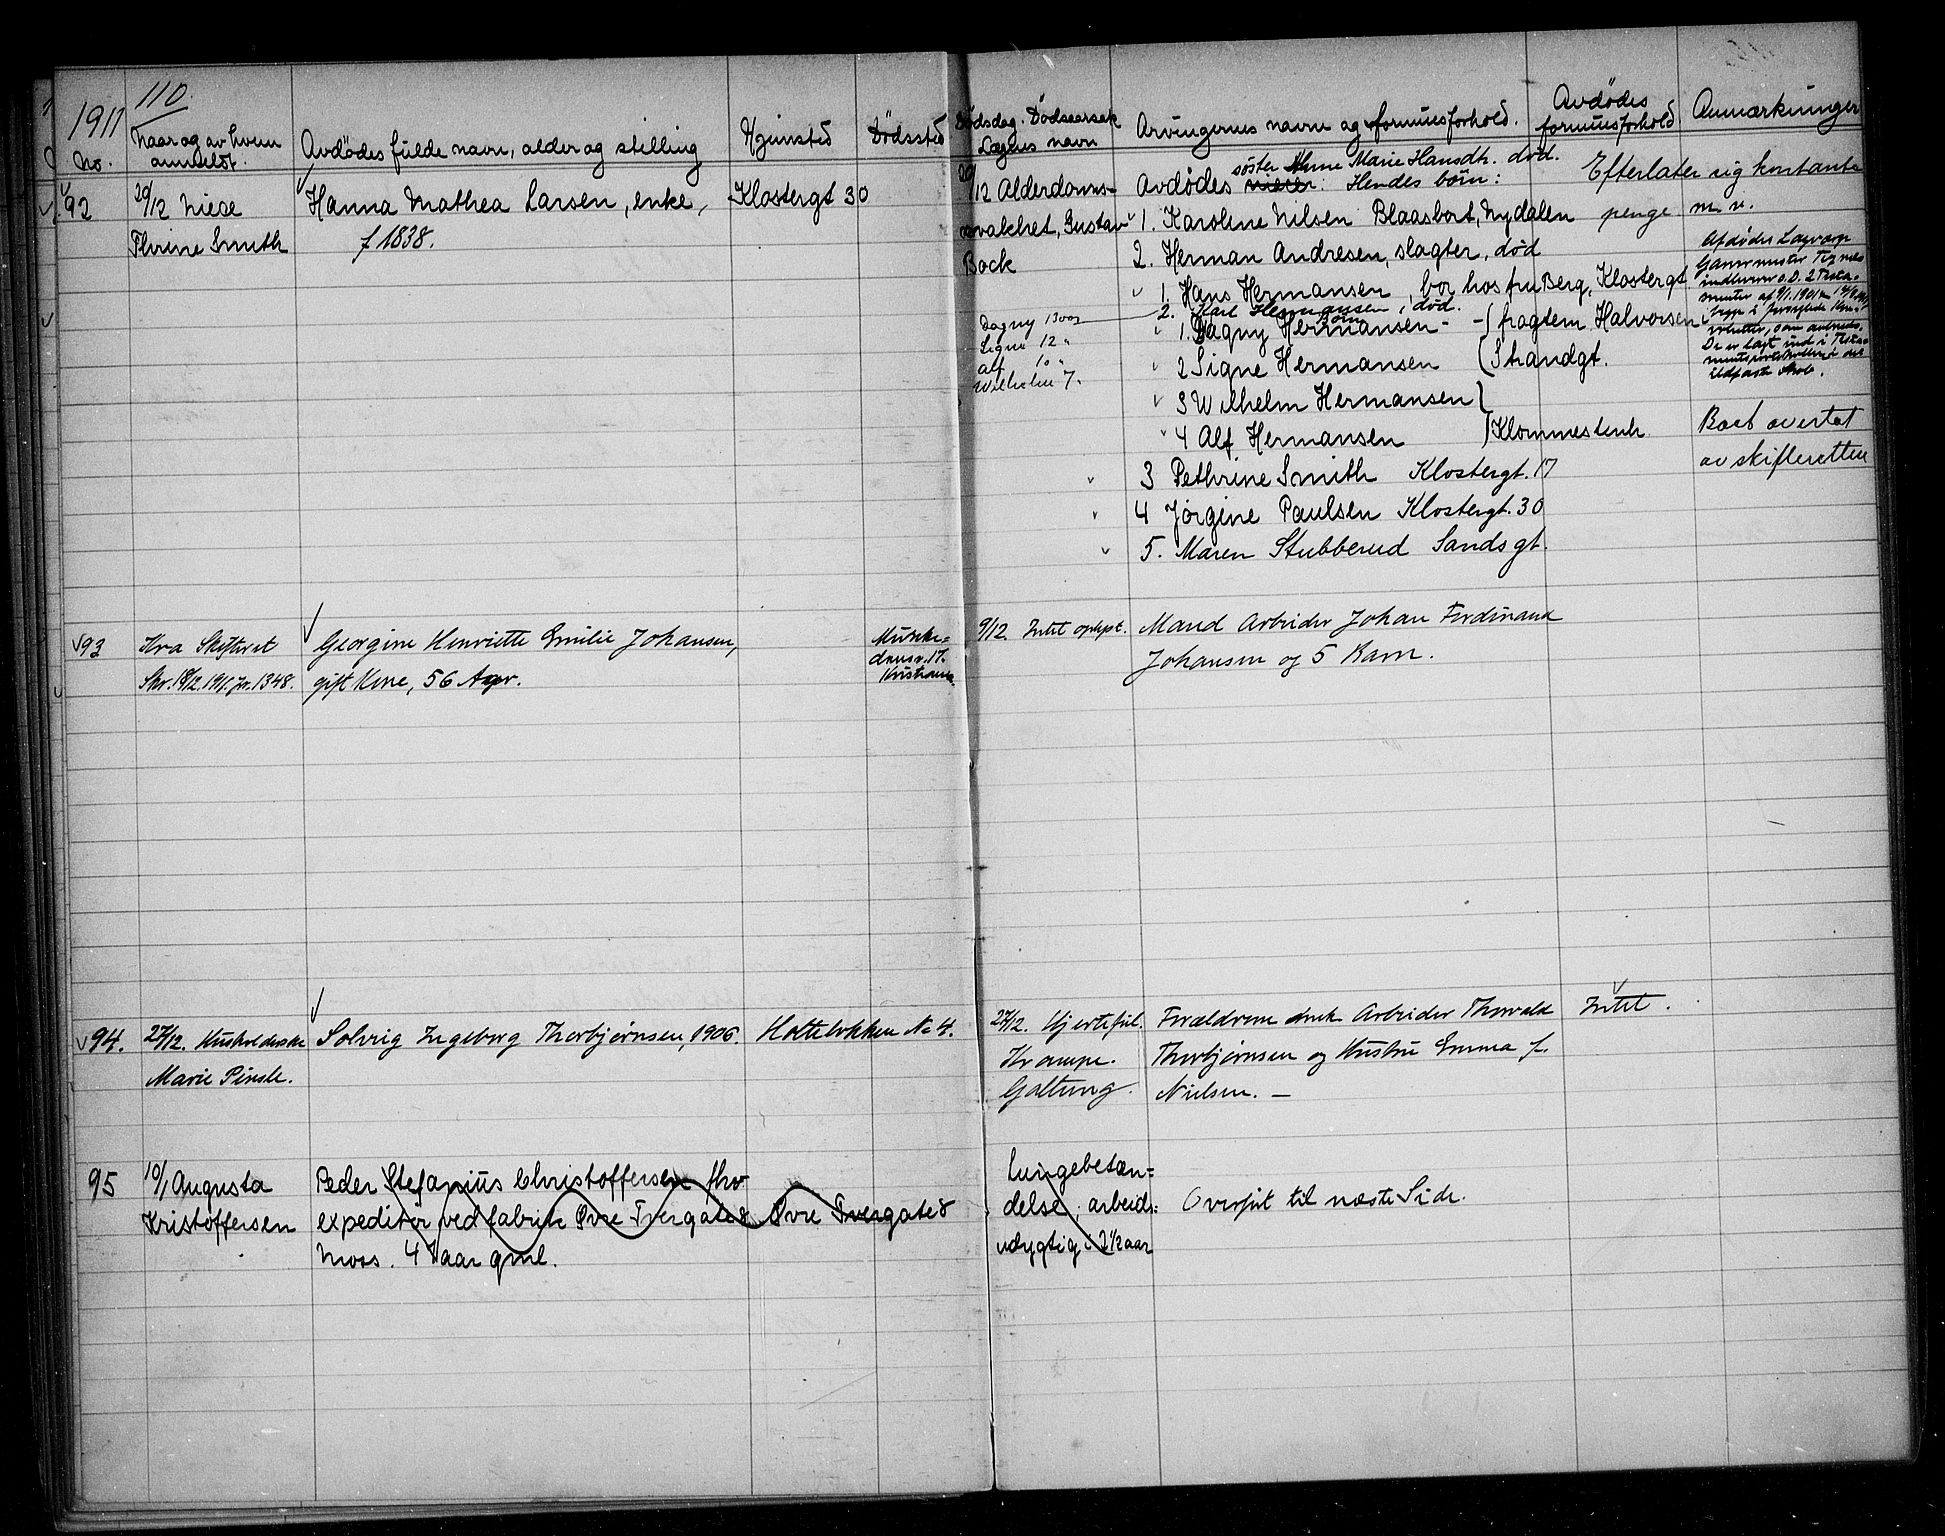 1911
110
No.
Naar og av hvem anmeldt.
Avdødes fulde navn, alder og stilling
Hjemsted
Dødssted
Dødsdag. Dødsaarsak
Lægens navn
Arvingernes navn og formuesforhold.
Avdødes
formuesforhold
Anmærkninger
92
20/12 Niece
Thrine Smith
Hanna Mathea Larsen, enke,
f 1838.
Klostergt 30
20/12 Alderdoms-
svakhet, Gustav
Bock
søster Anne Marie Hansdtr. død.
Avdødes niecer: Hendes børn:
1. Karoline Nilsen Blaasbort, Nydalen
2. Herman Andresen, slagter, død
1. Hans Hermansen, bor hos fru Berg, Klostergt
2. Karl Hermansen, død.
Børn
1. Dagny Hermansen - fragtem. Halvorsen
2 Signe Hermansen Strandgt.
3 Wilhelm Hermansen
4 Alf Hermansen Klommestenh.
3 Pethrine Smith Klostergt. 17
4 Jørgine Paulsen Klostergt. 30
5. Maren Stubberud Sandsgt.
Dagny 13 aar
Signe 12 "
Alf 10 "
Wilhelm 7 "
Efterlater sig kontante
penge m. v.
Afdødes Lagværge
Garvermester
indleverer d.D. 2 Testa-
menter af 9/1.1901
De er lagt ind i Testa-
mentsprotokollen i det
ildfaste skab.
Boet overtat
av skifteretten
93
Kra Skifteret
Skr. 18/12. 1911. Jr. 1348.
Georgine Henriette Emilie Johansen,
gift Kone, 56 Aar.
Munke-
damsv. 17.
Kristiania.
9/12 Intet oplyst.
Mand Arbeider Johan Ferdinand
Johansen og 5 Barn.
94.
27/12. Husholderske
Marie Pinsle.
Solveig Ingeborg Thorbjørnsen, 1906.
Holteløkken No 4.
27/12. Hjertefeil.
Krampe.
Galtung.
Forældrene druk. Arbeider Thorvald
Thorbjørnsen og Hustru Emma f.
Nielsen. -
Intet.
95
10/1 Augusta
Kristoffersen
Peder Stefanius Christoffersen fhv.
expeditør ved fabrik Øvre Tvergate 8
Moss. 41 aar gml.
Øvre Tvergate 8
Lungebetæn-
delse, arbeids-
udygtig i 2 1/2 aar
Overført til næste Side.